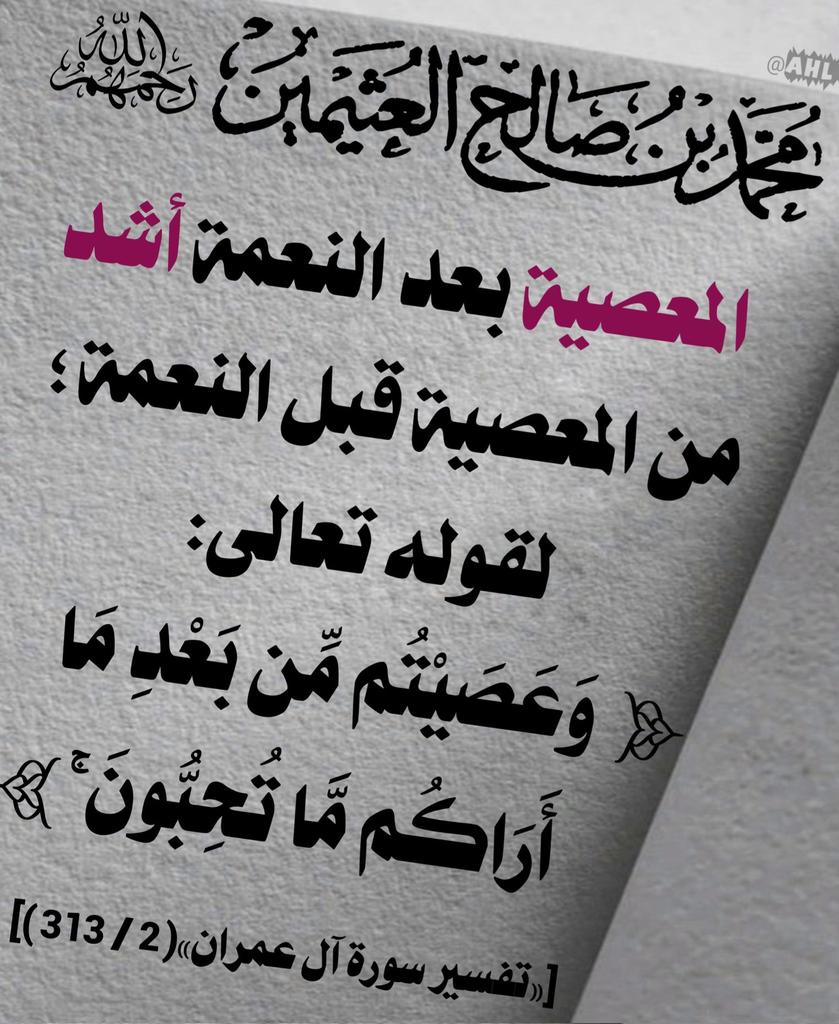 @AHL
محمد بن صالح العثيمين رحمهم الله
المعصية بعد النعمة أشد
من المعصية قبل النعمة؛
لقوله تعالى:
﴿ وَعَصَيْتُم مِّن بَعْدِ مَا
أَرَاكُم مَّا تُحِبُّونَ ۚ ﴾
[«تفسير سورة آل عمران»(2 / 313)]